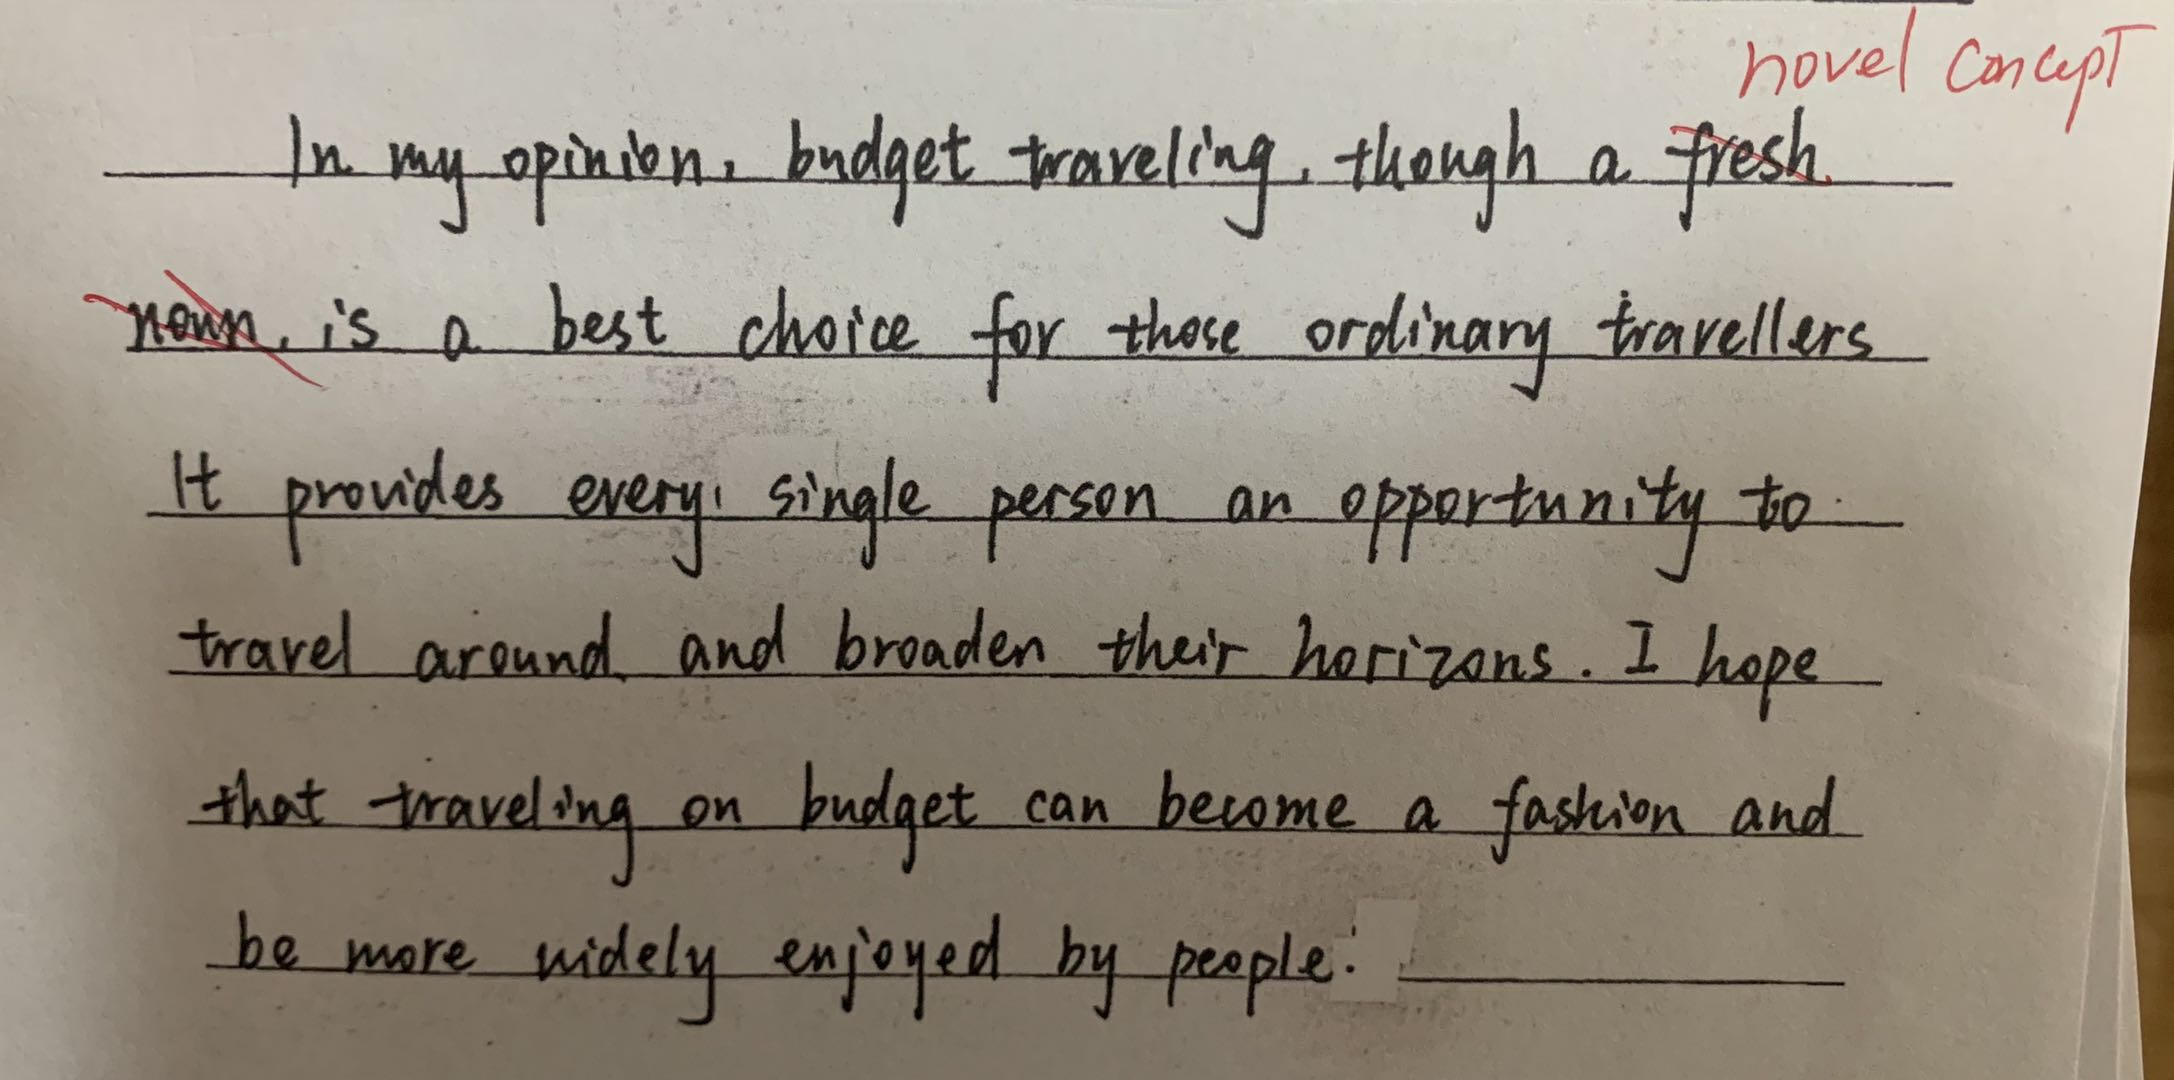 novel concept
In my opinion, budget traveling, though a fresh
noun, is a best choice for those ordinary travellers
It provides every single person an opportunity to
travel around and broaden their horizons. I hope
that traveling on budget can become a fashion and
be more widely enjoyed by people.